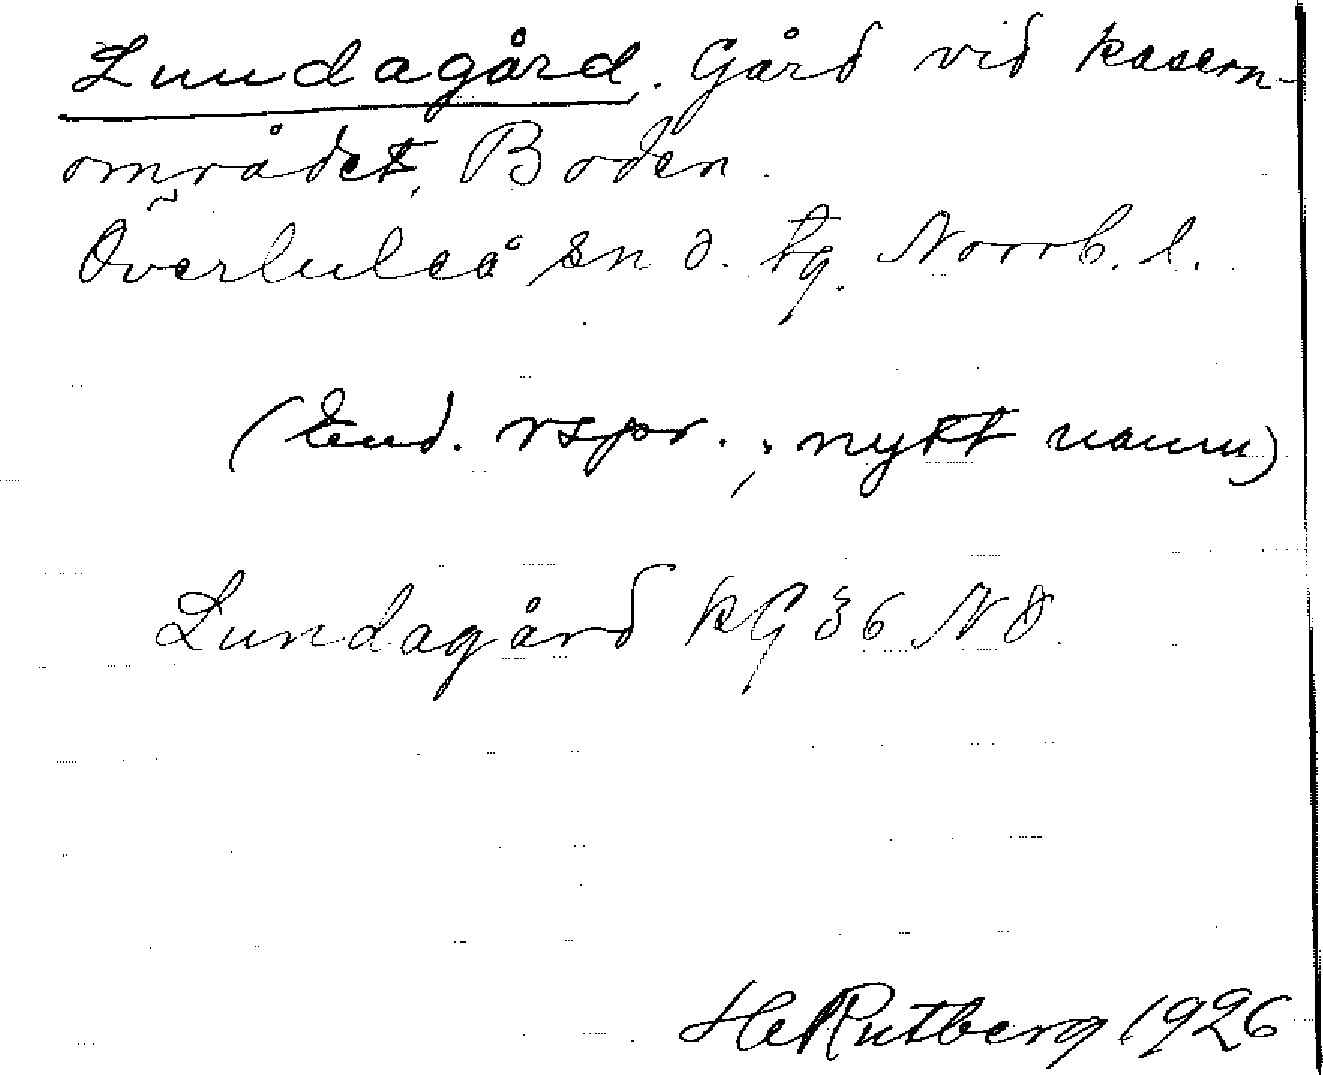 Lundagård. Gård vid kasern-
området, Boden.
Överluleå sn o. tg. Norrb. l.
(End. rspr.; nytt namn)
Lundagård kG 36 N 8.
HeRutberg 1926